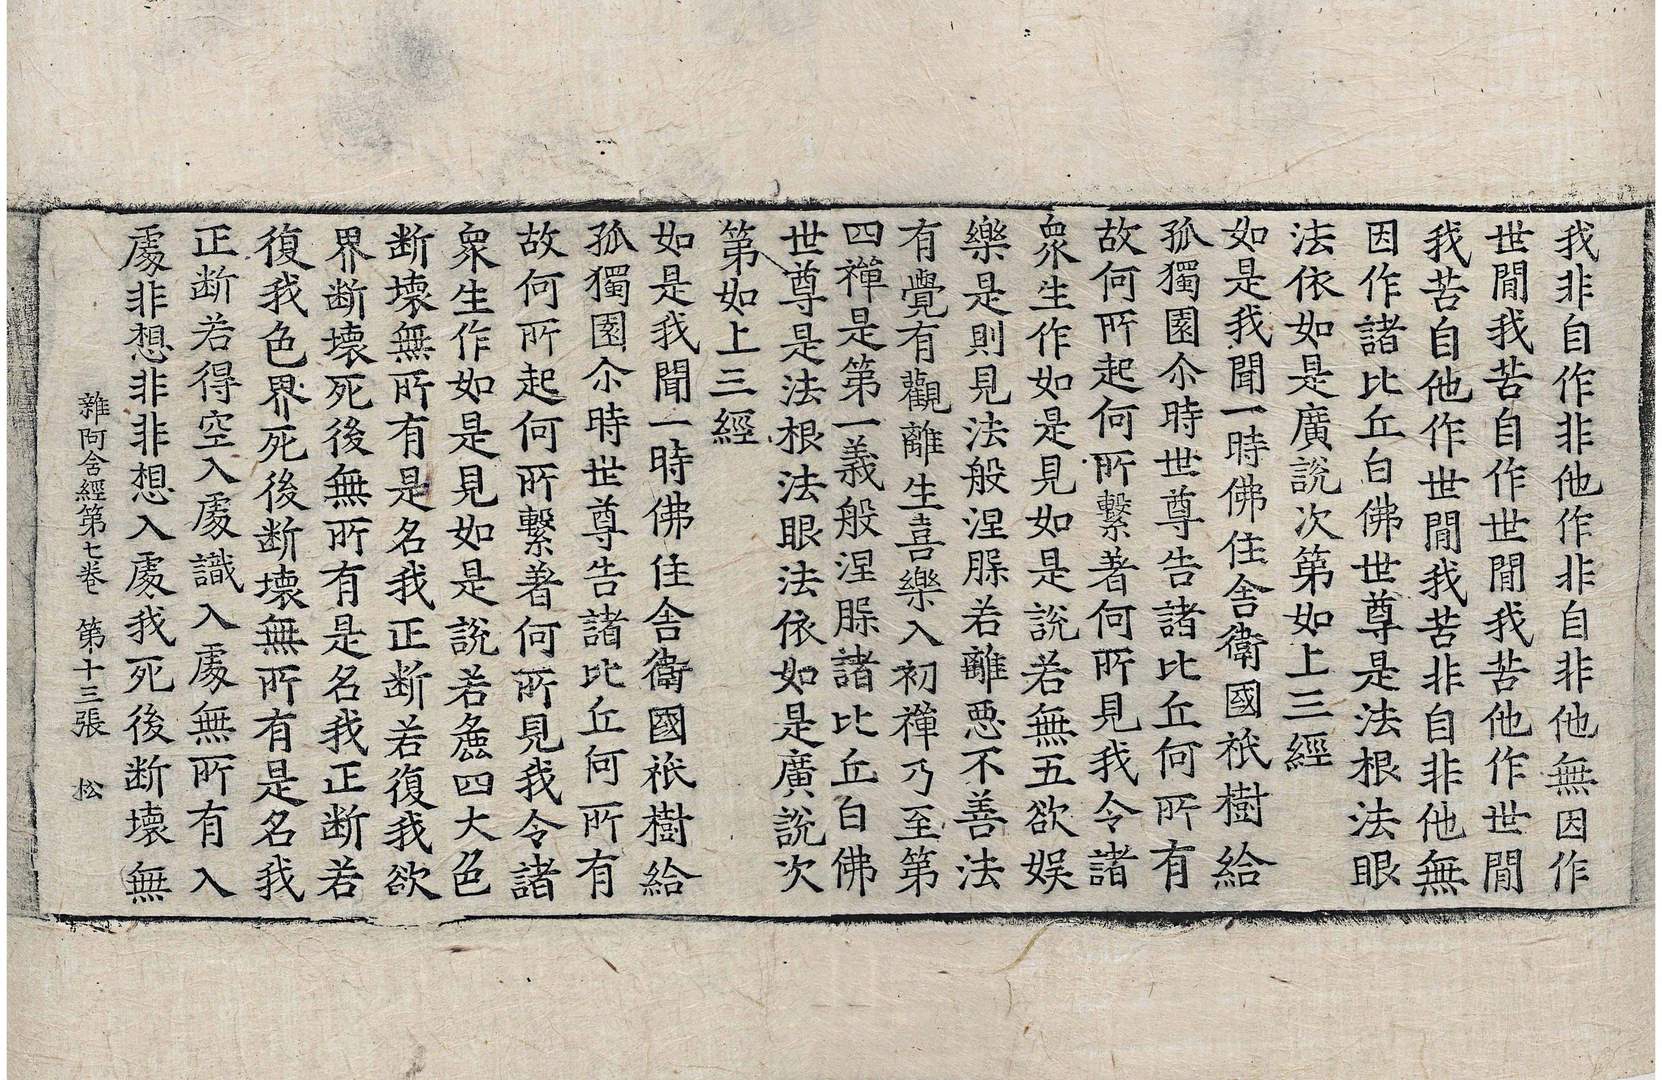 我非自作非他作非自非他無因作
世閒我苦自作世閒我苦他作世閒
我苦自他作世閒我苦非自非他無
因作諸比丘白佛世尊是法根法眼
法依如是廣說次第如上三經
如是我聞一時佛住舍衛國祇樹給
孤獨園尒時世尊告諸比丘何所有
故何所起何所繫著何所見我令諸
衆生作如是見如是說若無五欲娛
樂是則見法般涅槃若離惡不善法
有覺有觀離生喜樂入初禪乃至第
四禪是第一義般涅槃諸比丘白佛
世尊是法根法眼法依如是廣說次
第如上三經
如是我聞一時佛住舍衛國祇樹給
孤獨園尒時世尊告諸比丘何所有
故何所起何所繫著何所見我令諸
衆生作如是見如是說若麁四大色
断壞無所有是名我正断若復我欲
界断壞死後無所有是名我正断若
復我色界死後断壞無所有是名我
正断若得空入處識入處無所有入
處非想非非想入處我死後断壞無
雜阿含經第七卷 第十三張 松